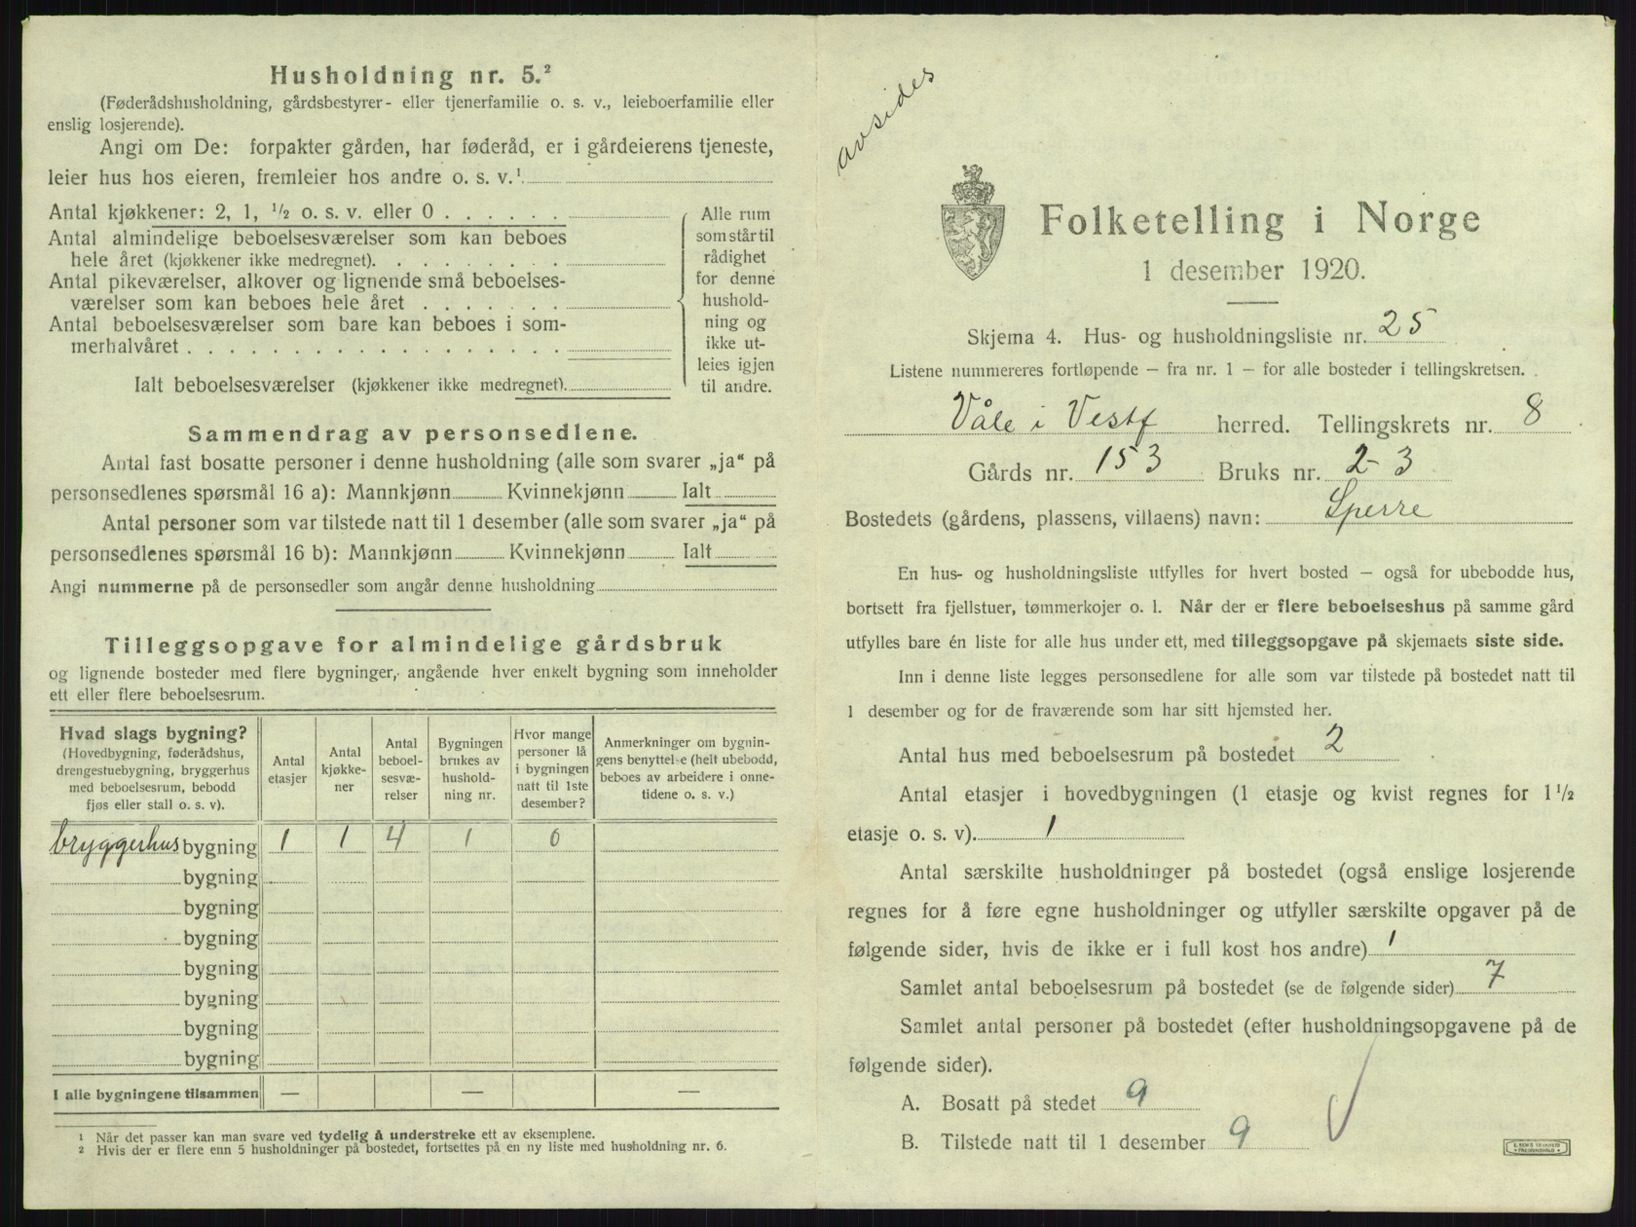 Husholdning nr. 5.²
(Føderådshusholdning, gårdsbestyrer- eller tjenerfamilie o. s. v., leieboerfamilie eller
enslig losjerende).
Angi om De: forpakter gården, har føderåd, er i gårdeierens tjeneste,
leier hus hos eieren, fremleier hos andre o. s. v.¹
Antal kjøkkener: 2, 1, ½ o. s. v. eller 0 . . . . . .
Antal almindelige beboelsesværelser som kan beboes
hele året (kjøkkener ikke medregnet). . . . . . . . .
Antal pikeværelser, alkover og lignende små beboelses-
værelser som kan beboes hele året . . . . . . .
Antal beboelsesværelser som bare kan beboes i som-
merhalvåret . . . . . . . . . . . . . . . . . .
Ialt beboelsesværelser (kjøkkener ikke medregnet).
Alle rum
som står til
rådighet
for denne
hushold-
ning og
ikke ut-
leies igjen
til andre.
Sammendrag av personsedlene.
Antal fast bosatte personer i denne husholdning (alle som svarer „ja“ på
personsedlenes spørsmål 16 a): Mannkjønn Kvinnekjønn Ialt
Antal personer som var tilstede natt til 1 desember (alle som svarer „ja“ på
personsedlenes spørsmål 16 b): Mannkjønn Kvinnekjønn Ialt
Angi nummerne på de personsedler som angår denne husholdning
Tilleggsopgave for almindelige gårdsbruk
og lignende bosteder med flere bygninger, angående hver enkelt bygning som inneholder
ett eller flere beboelsesrum.
Hvad slags bygning?
(Hovedbygning, føderådshus,
drengestuebygning, bryggerhus
med beboelsesrum, bebodd
fjøs eller stall o. s. v).
Antal
etasjer
Antal
kjøkke-
ner
Antal
beboel-
sesvæ-
relser
Bygningen
brukes av
hushold-
ning nr.
Hvor mange
personer lå
i bygningen
natt til 1ste
desember?
Anmerkninger om bygnin-
gens benyttelse (helt ubebodd,
beboes av arbeidere i onne-
tidene o. s. v.)
bryggerhus bygning 1 1 4 1 0
bygning
bygning
bygning
bygning
bygning
bygning
bygning
I alle bygningene tilsammen — — —
1 Når det passer kan man svare ved tydelig å understreke ett av eksemplene.
2 Hvis der er flere enn 5 husholdninger på bostedet, fortsettes på en ny liste med husholdning nr. 6.
avsides
Folketelling i Norge
1 desember 1920.
Skjema 4. Hus- og husholdningsliste nr. 25
Listene nummereres fortløpende — fra nr. 1 — for alle bosteder i tellingskretsen.
Våle i Vestf herred. Tellingskrets nr. 8
Gårds nr. 153 Bruks nr. 2-3
Bostedets (gårdens, plassens, villaens) navn: Sperre
En hus- og husholdningsliste utfylles for hvert bosted — også for ubebodde hus,
bortsett fra fjellstuer, tømmerkojer o. l. Når der er flere beboelseshus på samme gård
utfylles bare én liste for alle hus under ett, med tilleggsopgave på skjemaets siste side.
Inn i denne liste legges personsedlene for alle som var tilstede på bostedet natt til
1 desember og for de fraværende som har sitt hjemsted her.
Antal hus med beboelsesrum på bostedet 2
Antal etasjer i hovedbygningen (1 etasje og kvist regnes for 1½
etasje o. s. v). 1
Antal særskilte husholdninger på bostedet (også enslige losjerende
regnes for å føre egne husholdninger og utfyller særskilte opgaver på de
følgende sider, hvis de ikke er i full kost hos andre) 1
Samlet antal beboelsesrum på bostedet (se de følgende sider) 7
Samlet antal personer på bostedet (efter husholdningsopgavene på de
følgende sider).
A. Bosatt på stedet 9
B. Tilstede natt til 1 desember 9